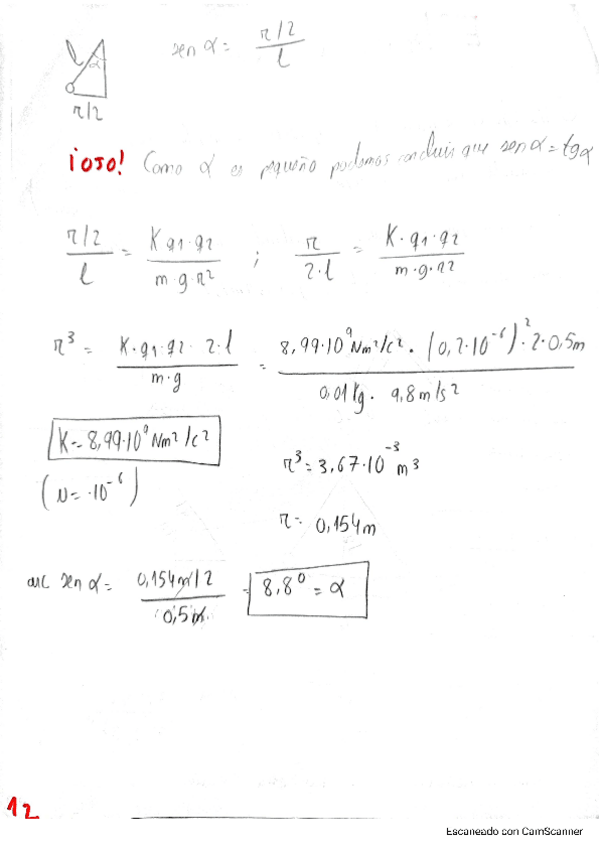 sen α = r/2 / l
l
α
r/2
¡OJO! Como α es pequeño podemos concluir que sen α = tg α
r/2 / l = K q1·q2 / m·g·r² ; r / 2·l = K·q1·q2 / m·g·r²
r³ = K·q1·q2·2·l / m·g = 8,99·10⁹ Nm²/c² · (0,2·10⁻⁶)²·2·0,5m / 0,01Kg · 9,8m/s²
K = 8,99·10⁹ Nm²/c²
r³ = 3,67·10⁻³ m³
(μ = ·10⁻⁶)
r = 0,154m
arc sen α = 0,154m/2 / 0,5m = 8,8° = α
12
Escaneado con CamScanner